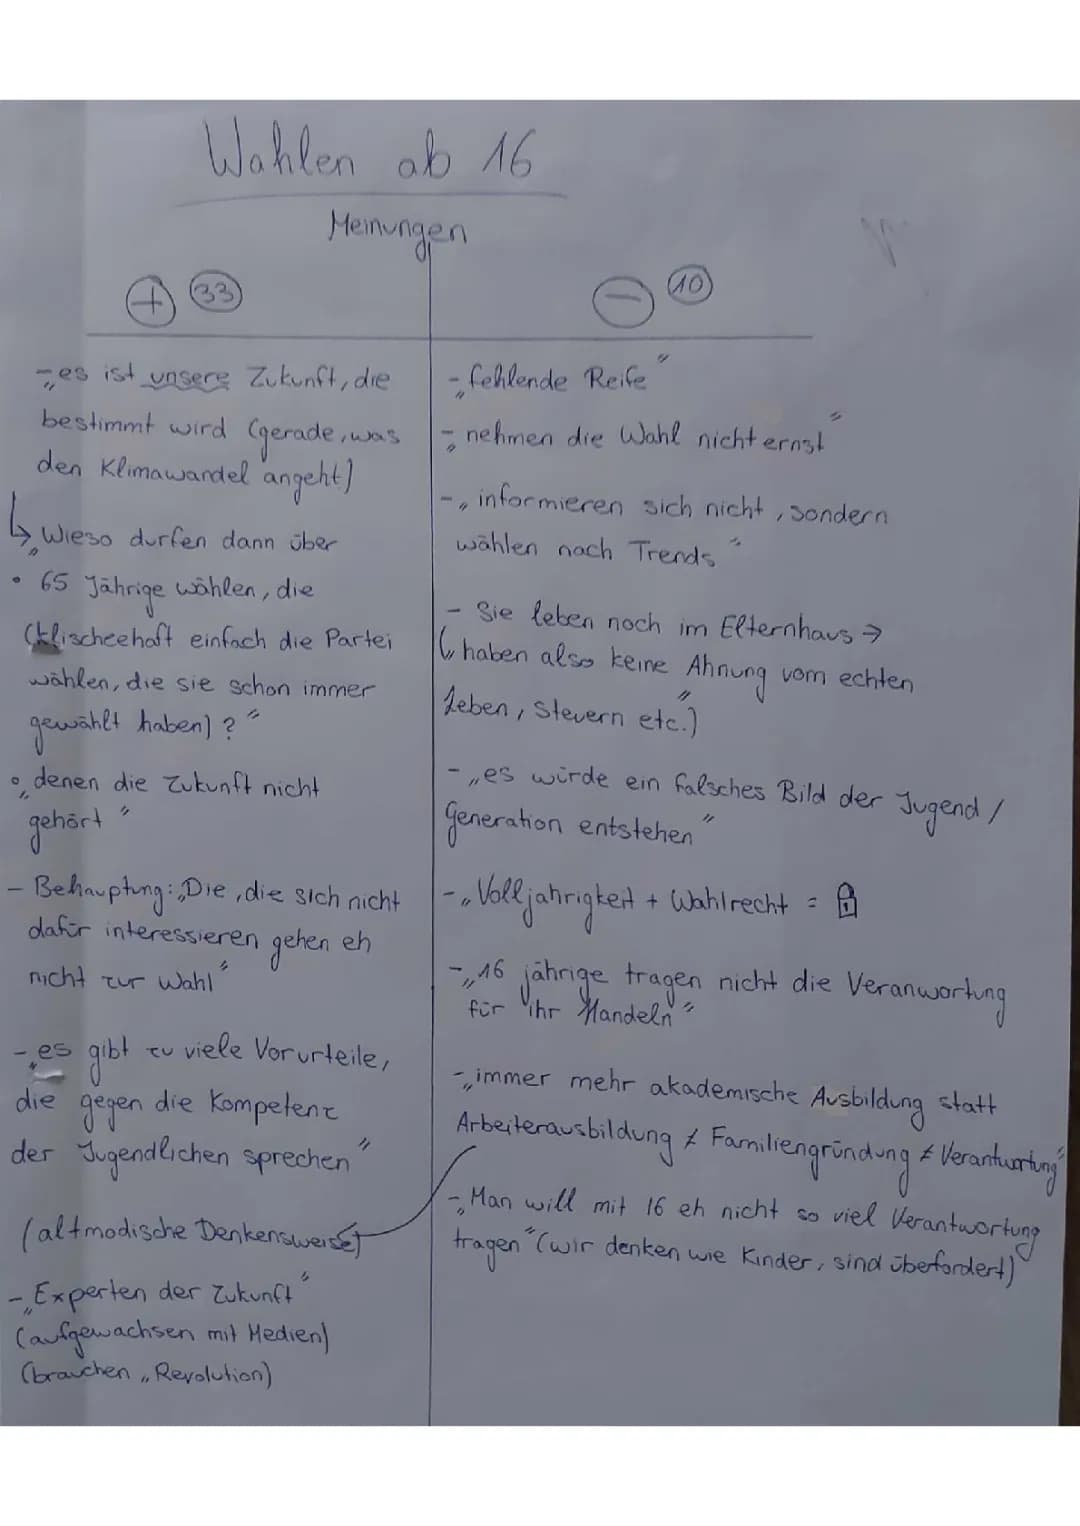 Wahlen ab 16
Meinungen
+ 33
- „es ist unsere Zukunft, die
bestimmt wird (gerade, was
den Klimawandel angeht)
↳ „Wieso durfen dann über
• 65 Jährige wählen, die
(klischeehaft einfach die Partei
wählen, die sie schon immer
gewählt haben) ?"
• „denen die Zukunft nicht
gehört"
- Behauptung: „Die, die sich nicht
dafür interessieren gehen eh
nicht zur Wahl"
- „es gibt zu viele Vorurteile,
die gegen die Kompetenz
der Jugendlichen sprechen"
(altmodische Denkensweise)
- „Experten der Zukunft"
(aufgewachsen mit Medien)
(brauchen „Revolution)
- 10
- „fehlende Reife"
- „nehmen die Wahl nicht ernst"
- „informieren sich nicht, sondern
wählen nach Trends"
- Sie leben noch im Elternhaus →
(„haben also keine Ahnung vom echten
Leben, Steuern etc.")
- „es würde ein falsches Bild der Jugend /
Generation entstehen"
- „Volljahrigkeit + Wahlrecht = 🔒
- „16 jährige tragen nicht die Veranwortung
für ihr Handeln"
- „immer mehr akademische Ausbildung statt
Arbeiterausbildung ≠ Familiengründung ≠ Verantwortung"
- „Man will mit 16 eh nicht so viel Verantwortung
tragen" (wir denken wie Kinder, sind überfordert)